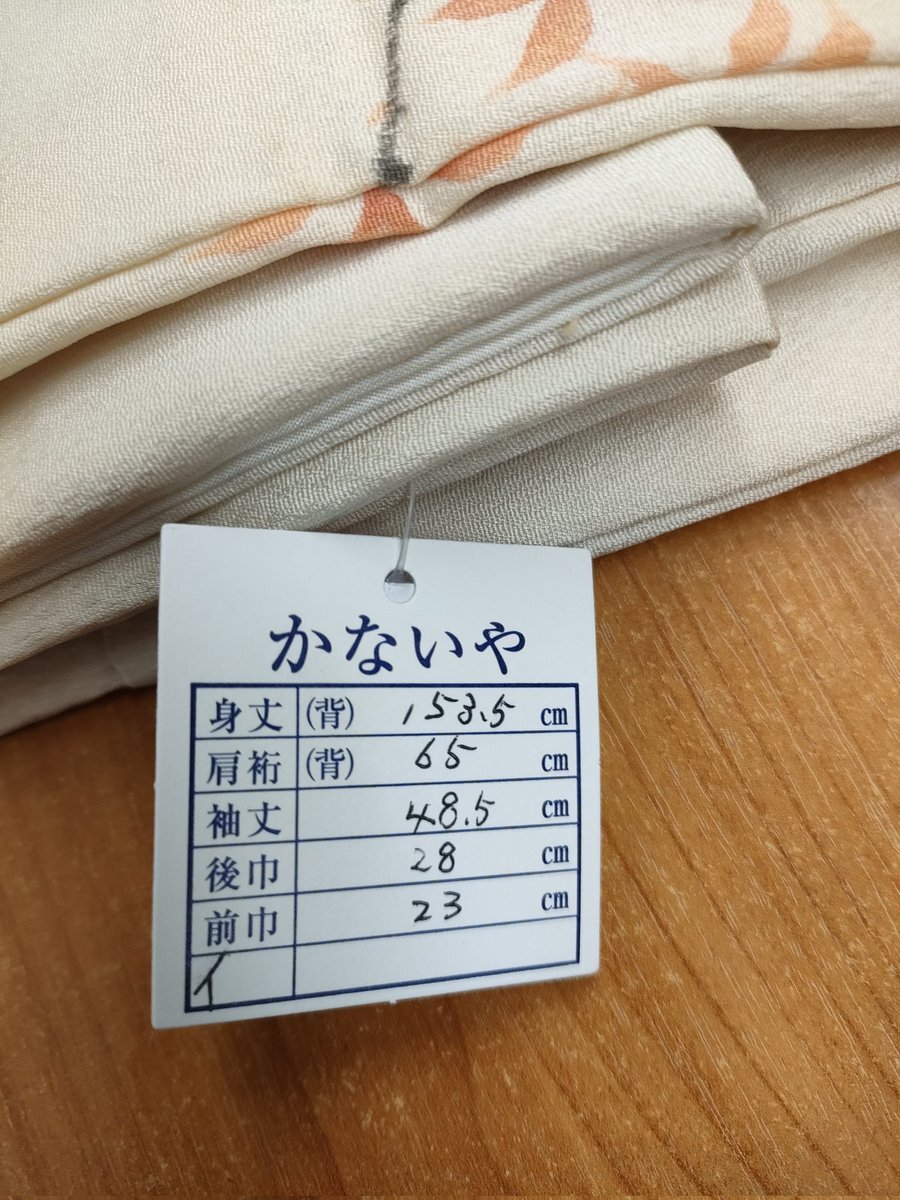 かないや
身丈 (背) 153.5 cm
肩裄 (背) 65 cm
袖丈 48.5 cm
後巾 28 cm
前巾 23 cm
イ